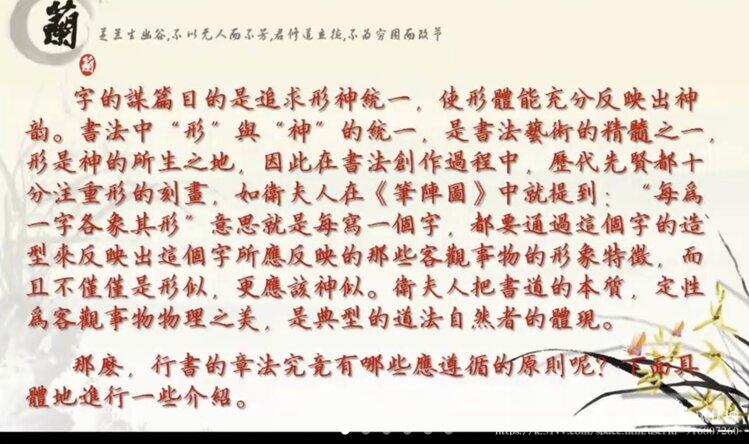 蘭
芝兰生幽谷,不以无人而不芳,君修道立德,不为穷困而改节
蘭
字的謀篇目的是追求形神統一，使形體能充分反映出神
韵。書法中“形”與“神”的統一，是書法藝術的精髓之一，
形是神的所生之地，因此在書法創作過程中，歷代先賢都十
分注重形的刻畫，如衛夫人在《筆陣圖》中就提到：“每爲
一字各象其形”意思就是每寫一個字，都要通過這個字的造
型來反映出這個字所應反映的那些客觀事物的形象特徵，而
且不僅僅是形似，更應該神似。衛夫人把書道的本質，定性
爲客觀事物物理之美，是典型的道法自然者的體現。
那麽，行書的章法究竟有哪些應遵循的原則呢？下面具
體地進行一些介紹。